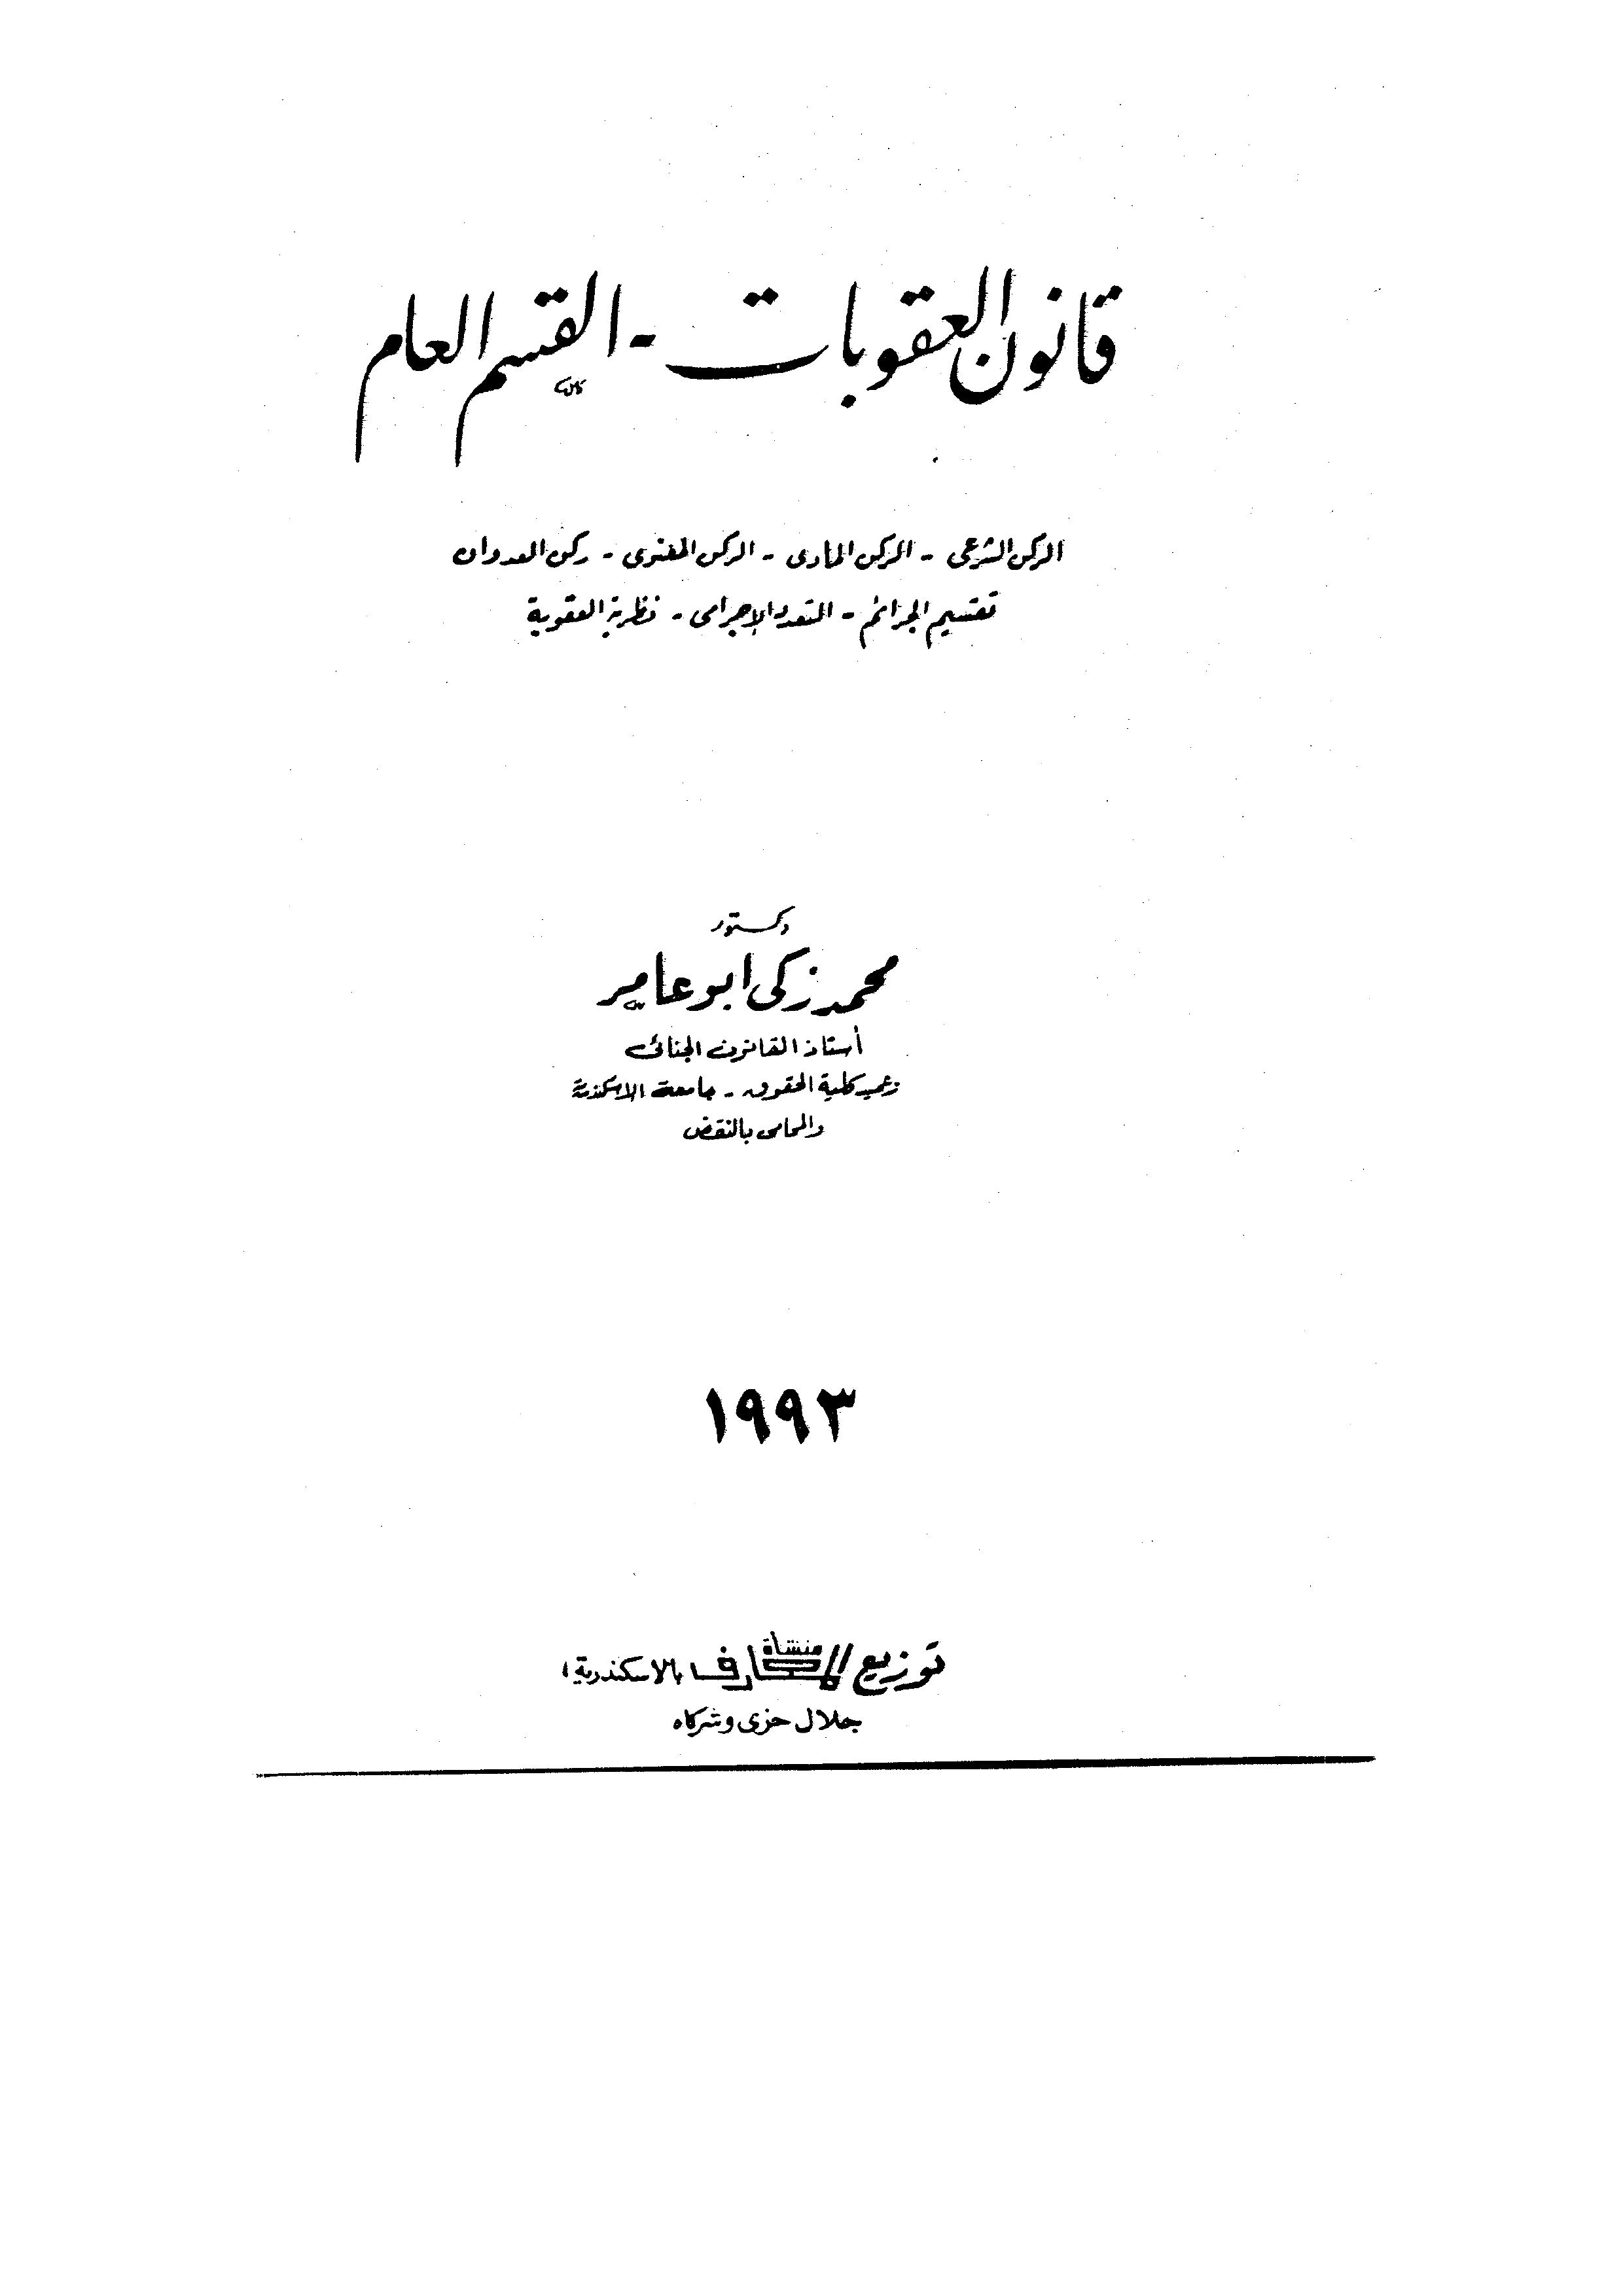 قانون العقوبات - القسم العام
الركن الشرعى - الركن المادى - الركن المعنوى - ركن العدوان
تقسيم الجرائم - التعدد الإجرامى - نظرية العقوبة
دكتور
محمد زكى ابو عامر
أستاذ القانون الجنائى
وعميد كلية الحقوق - جامعة الاسكندرية
والمحامى بالنقض
١٩٩٣
توزيع منشأة المعارف بالاسكندرية
جلال حزى وشركاه